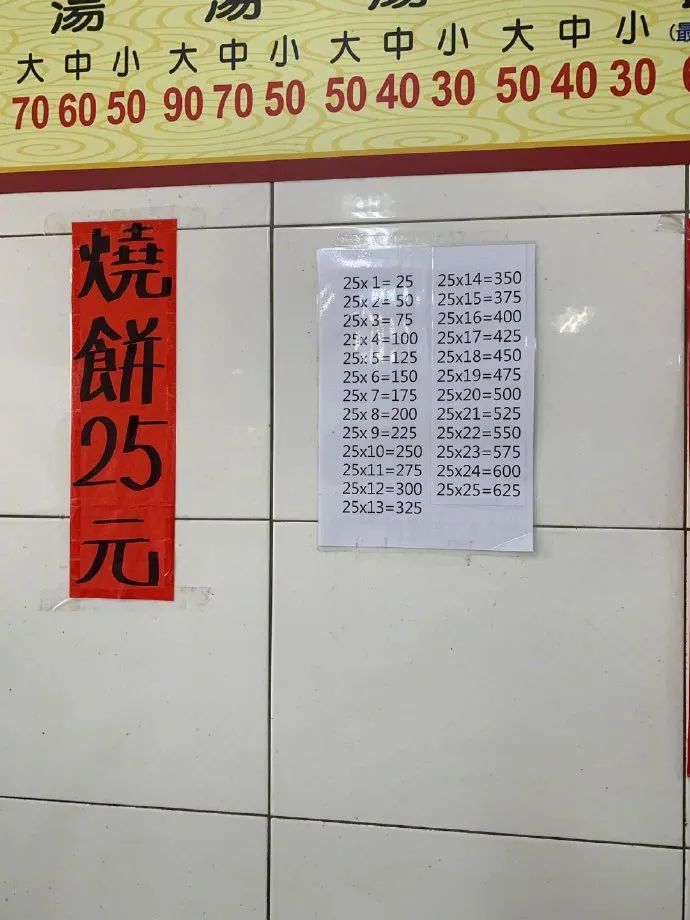 湯 湯 湯
大 中 小 大 中 小 大 中 小 大 中 小 (最
70 60 50 90 70 50 50 40 30 50 40 30
燒餅25元
25x 1= 25
25x 2= 50
25x 3= 75
25x 4=100
25x 5=125
25x 6=150
25x 7=175
25x 8=200
25x 9=225
25x10=250
25x11=275
25x12=300
25x13=325
25x14=350
25x15=375
25x16=400
25x17=425
25x18=450
25x19=475
25x20=500
25x21=525
25x22=550
25x23=575
25x24=600
25x25=625